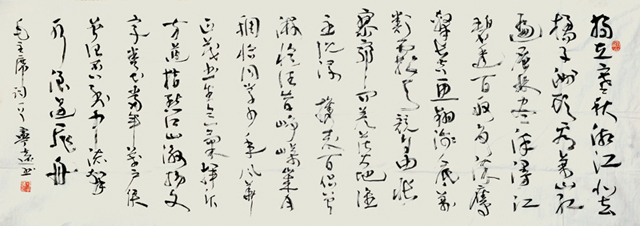 独立寒秋湘江北去
橘子洲头看万山红
遍层林尽染漫江
碧透百舸争流鹰
击长空鱼翔浅底万
类霜天竞自由怅
寥廓问苍茫大地谁
主沉浮 携来百侣曾
游忆往昔峥嵘岁月
稠恰同学少年风华
正茂书生意气挥斥
方遒指点江山激扬文
字粪土当年万户侯
曾记否到中流击
水浪遏飞舟
毛主席词